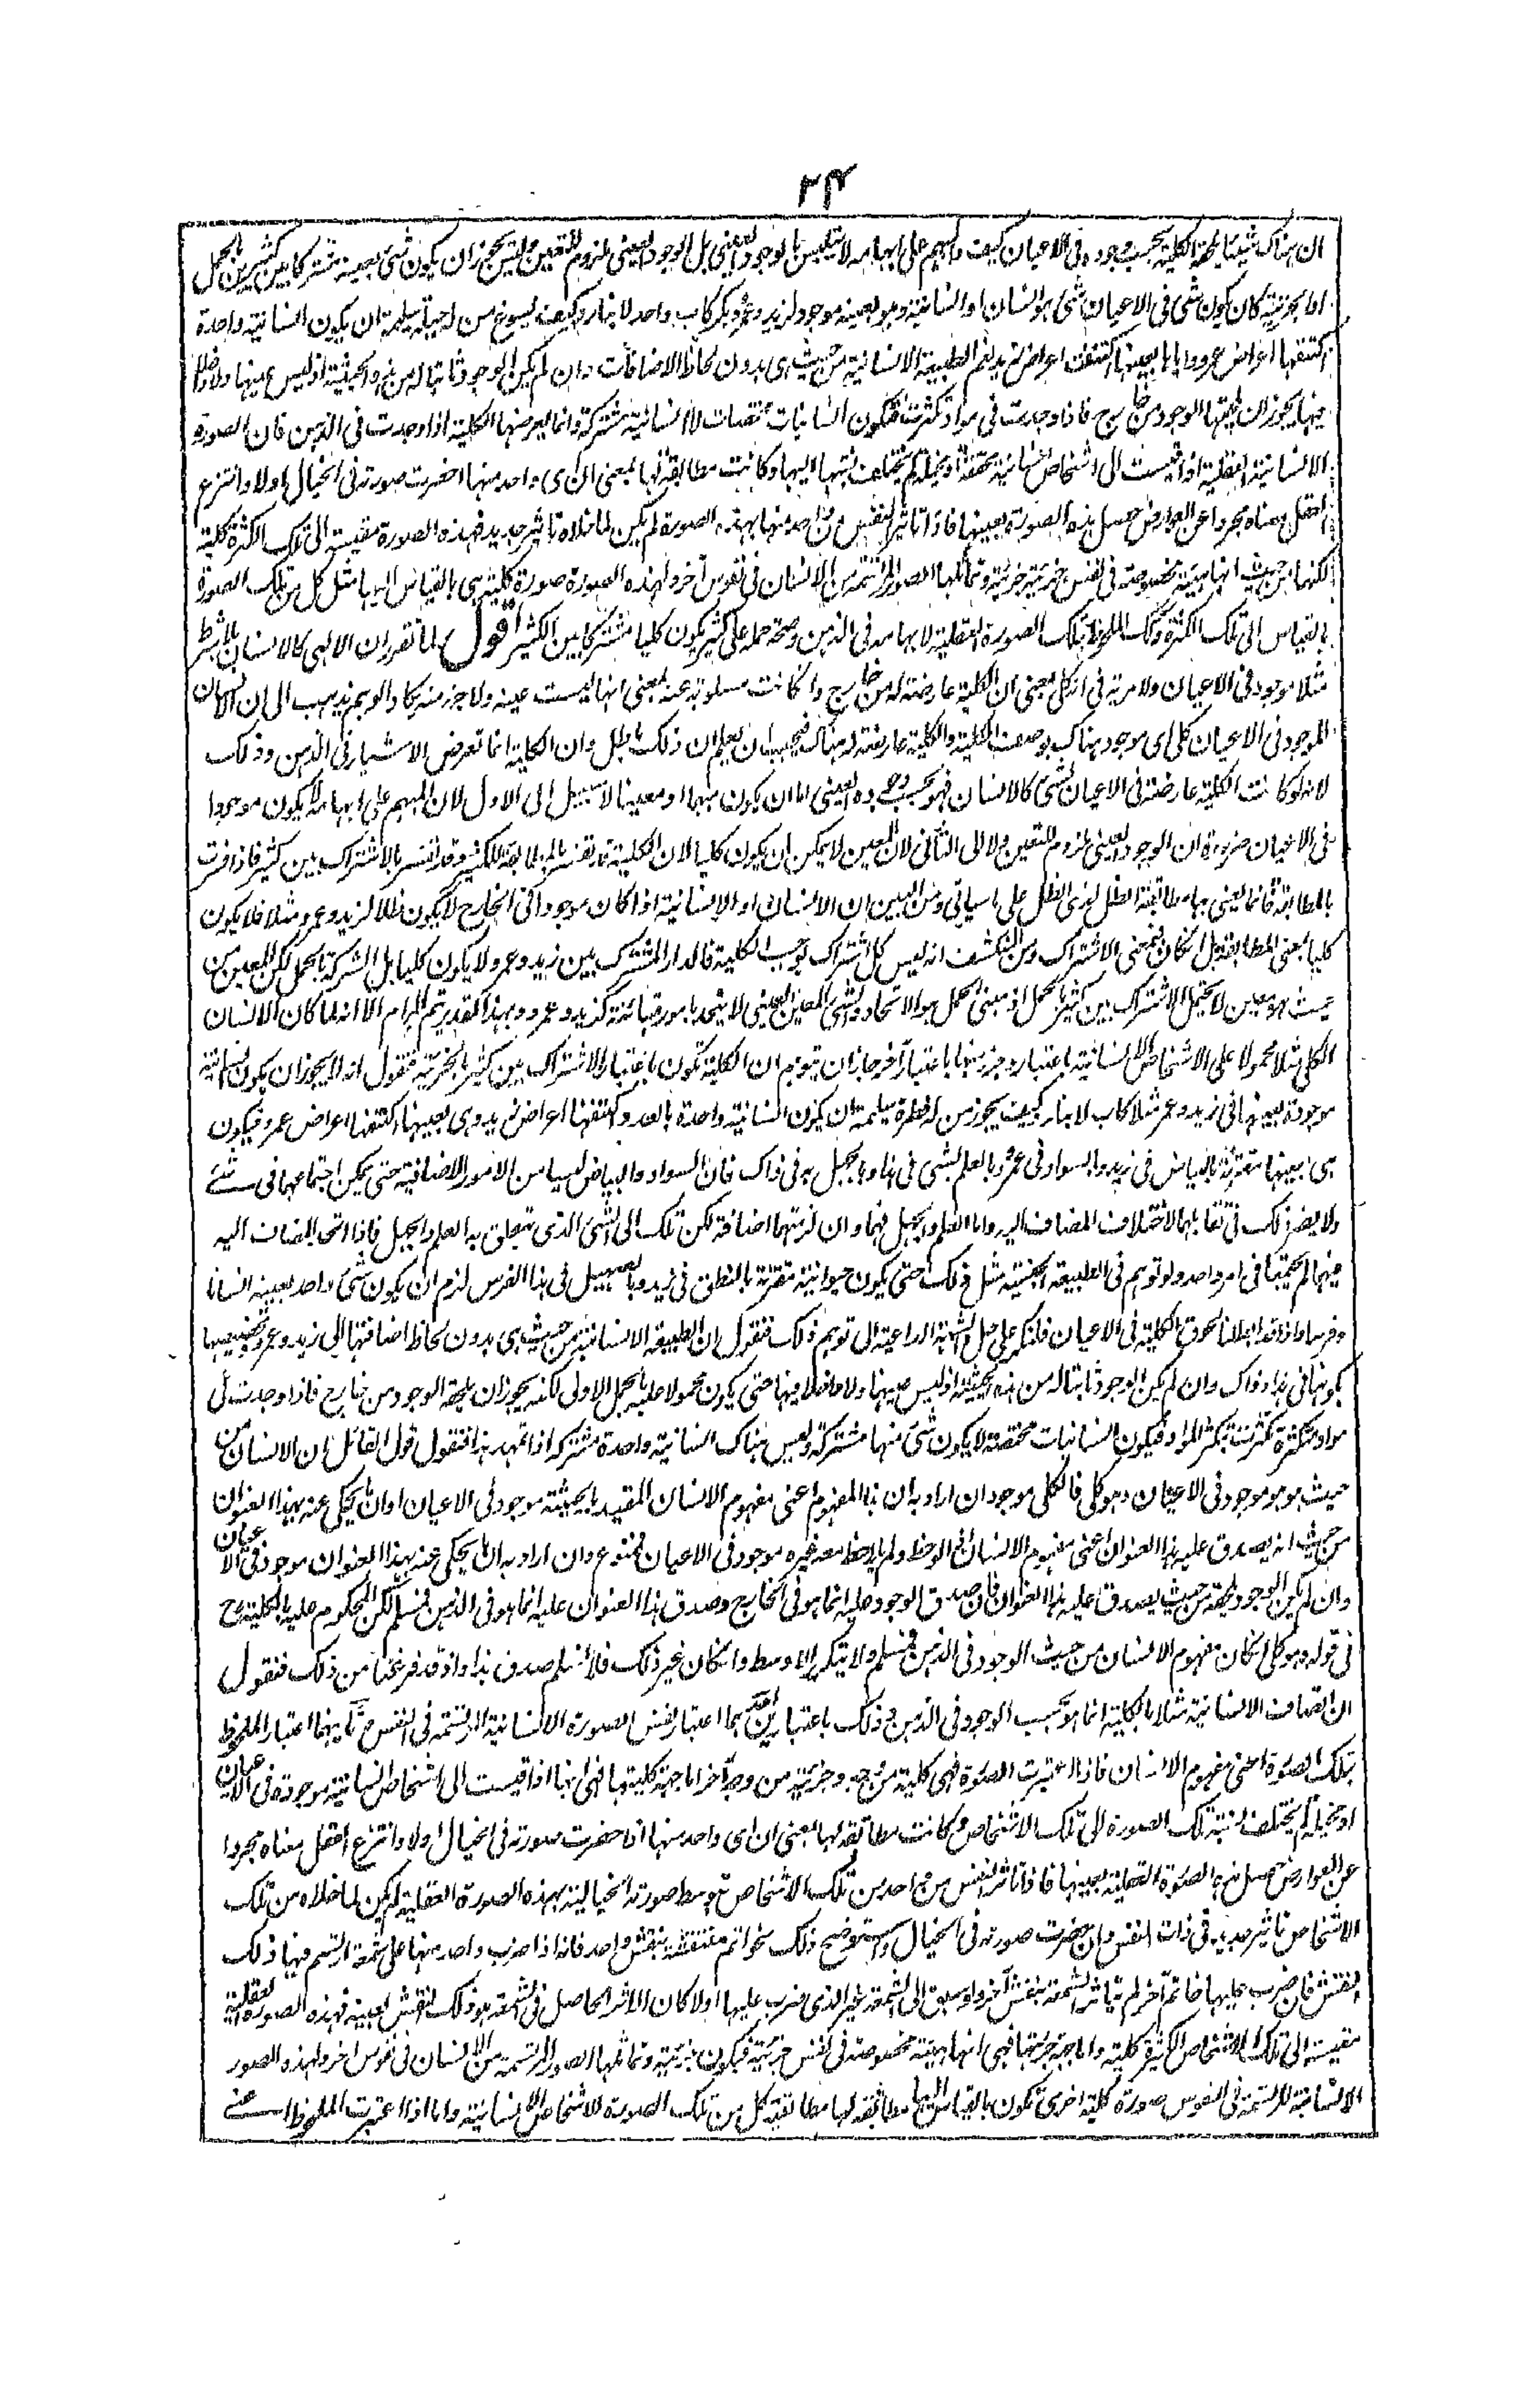 ٢٤
ان هناك شيئا يلحقه الكلية بحسب وجوده فى الاعيان كيف والمبهم على ابهامه لا يتلبس بالوجود العينى بل الوجود العينى ملزوم للتعين وليس يجوز ان يكون شئ بعينه مشتركا بين كثيرين بالحمل
او بالجزئية كان يكون شئ فى الاعيان شئ هو انسان او انسانية وهو بعينه موجود لزيد وعمرو وبكر كاب واحد لابناء وكيف يسوغ من له جبلة سليمة ان يكون انسانية واحدة
اكتنفها اعراض عمرو واياها بعينها اكتنفت اعراض زيد نعم الطبيعة الانسانية من حيث هى بدون لحاظ الاضافات وان لم يكن الوجود ثابتا له من هذه الحيثية اذ ليس عينها ولا داخلا
فيها يجوز ان يلحقها الوجود من خارج فاذا وجدت فى مواد تكثرت فتكون انسانيات مختصات لا انسانية مشتركة وانما يعرضها الكلية اذا وجدت فى الذهن فان الصورة
الانسانية العقلية اذا قيست الى اشخاص انسانية محققة او مخيلة لم يختلف نسبتها اليها وكانت مطابقة لها بمعنى ان اى واحد منها احضرت صورته فى الخيال اولا وانتزع
العقل معناه مجردا عن العوارض حصل هذه الصورة بعينها فاذا تاثر النفس من واحد منها بهذه الصورة لم يكن لما خلاه تاثير جديد فهذه الصورة مقيسة الى تلك الكثرة كلية
لكنها من حيث انها هيئة مخصوصة فى نفس جزئية جزئية وتماثلها الصور المرتسمة من الانسان فى نفوس آخر ولهذه الصورة صورة كلية هى بالقياس اليها مثل كل من تلك الصورة
بالقياس الى تلك الكثرة وذلك الملحوظ بتلك الصورة العقلية لابهامه فى الذهن وصحة حمله على كثير يكون كليا مشتركا بين الكثير اقول لما تقرر ان الالهى كالانسان بلا شرط
مثلا موجود فى الاعيان ولا مرية فى انه كلى بمعنى ان الكلية عارضة له من خارج وان كانت مسلوبة عنه بمعنى انها ليست عينه ولا جزء منه يكاد الوهم يذهب الى ان الانسان
الموجود فى الاعيان كلى اى موجود هناك بوصف الكلية والكلية عارضة له هناك فيجب ان يعلم ان ذلك باطل وان الكلية انما تعرض الاشياء فى الذهن وذلك
لانه لو كانت الكلية عارضة فى الاعيان لشئ كالانسان فهو بحسب وجوده العينى اما ان يكون مبهما او معينا لا سبيل الى الاول لان المبهم على ابهامه لا يكون موجودا
فى الاعيان ضرورة ان الوجود العينى ملزوم للتعين ولا الى الثانى لان المعين لا يمكن ان يكون كليا لان الكلية قد تفسر بالمطابقة للكثير وقد تفسر بالاشتراك بين كثير فاذا فسرت
بالمطابقة فانما يعنى بها مطابقة الظل لذى الظل على ما سياتى ومن البين ان الانسان او الانسانية اذا كان موجودا فى الخارج لا يكون ظلا لزيد وعمرو مثلا فلا يكون
كليا بمعنى المطابقة بل ان كان فبمعنى الاشتراك ومن المنكشف انه ليس كل اشتراك يوجب الكلية فالدار المشترك بين زيد وعمرو لا يكون كليا بل الشركة بالحمل لكن المعين من
حيث هو معين لا يحتمل الاشتراك بين كثير بالحمل اذ مبنى الحمل هو الاتحاد والشئ المعين العينى لا يتحد بامور متباينة كزيد وعمرو وبهذا القدر يتم المرام الا انه لما كان الانسان
الكلى مثلا محمولا على الاشخاص الانسانية باعتبار وجزء منها باعتبار آخر جاز ان يتوهم ان الكلية تكون باعتبار الاشتراك بين كثير بالجزئية فنقول انه لا يجوز ان يكون انسانية
موجودة بعينها فى زيد وعمرو مثلا كاب لابناء كيف يجوز من له فطرة سليمة ان يكون انسانية واحدة بالعدد اكتنفها اعراض زيد وهى بعينها اكتنفها اعراض عمرو فيكون
هى بعينها مقترنة بالبياض فى زيد والسواد فى عمرو بالعلم بشئ فى هذا وبالجهل به فى ذاك فان السواد والبياض ليسا من الامور الاضافية حتى يمكن اجتماعهما فى شئ
ولا يضر ذلك فى تقابلهما لاختلاف المضاف اليه واما العلم والجهل فهما وان لزمتهما اضافة لكن تلك الى الشئ الذى تعلق به العلم والجهل فاذا اتحد المضاف اليه
فيهما لم يجتمعا فى امر واحد ولو توهم فى الطبيعة الجنسية مثل ذلك حتى يكون حيوانية مقترنة بالنطق فى زيد وبالصهيل فى هذا الفرس لزم ان يكون شئ واحد بعينه انسانا
وفرسا واذ قد ابطلنا لحوق الكلية فى الاعيان فلنكر على حل الشبهة الداعية الى توهم ذلك فنقول ان الطبيعة الانسانية من حيث هى بدون لحاظ اضافتها الى زيد وعمرو وتخصيصها
بكونها فى هذا وذاك وان لم يكن الوجود ثابتا له من هذه الحيثية اذ ليس عينها ولا داخلا فيها حتى يكون محمولا عليه بالحمل الاولى لكنه يجوز ان يلحقه الوجود من خارج فاذا وجدت فى
مواد متكثرة تكثرت بتكثر المواد فيكون انسانيات مختصة لا يكون شئ منها مشتركة وليس هناك انسانية واحدة مشتركة اذا تمهد هذا فنقول قول القائل ان الانسان من
حيث هو هو موجود فى الاعيان وهو كلى فالكلى موجود ان اراد به ان هذا المفهوم اعنى مفهوم الانسان المقيد بالحيثية موجود فى الاعيان او ان ما يحكى عنه بهذا العنوان
من حيث انه يصدق عليه هذا العنوان اعنى مفهوم الانسان الملحوظ ولم يلاحظ معه غيره موجود فى الاعيان فممنوع وان اراد به ان ما يحكى عنه بهذا العنوان موجود فى الاعيان
وان لم يكن الوجود يلحقه من حيث يصدق عليه هذا العنوان فان صدق الوجود عليه انما هو فى الخارج وصدق هذا العنوان عليه انما هو فى الذهن فمسلم لكن المحكوم عليه بالكلية ح
فى قوله وهو كلى ان كان مفهوم الانسان من حيث الوجود فى الذهن فمسلم ولا يتكرر الاوسط وان كان غير ذلك فلا نسلم صدق هذا واذ قد فرغنا من ذلك فنقول
ان اتصاف الانسانية مثلا بالكلية انما هو بحسب الوجود فى الذهن وذلك باعتبارين احدهما اعتبار نفس الصورة الانسانية المرتسمة فى النفس وثانيهما اعتبار الملحوظ
بتلك الصورة اعنى مفهوم الانسان فاذا اعتبرت الصورة فهى كلية من وجه وجزئية من وجه آخر اما جهة كليتها فهى انها اذا قيست الى اشخاص انسانية موجودة فى الاعيان
او مخيلة لم يختلف نسبة تلك الصورة الى تلك الاشخاص وكانت مطابقة لها بمعنى ان اى واحد منها اذا حضرت صورته فى الخيال اولا وانتزع العقل معناه مجردا
عن العوارض حصل هذه الصورة العقلية بعينها فاذا تاثر النفس من واحد من تلك الاشخاص بتوسط صورته الخيالية بهذه الصورة العقلية لم يكن لما خلاه من تلك
الاشخاص تاثير جديد فى ذات النفس وان حضرت صورته فى الخيال واستوضح ذلك بخواتم منتقشة بنقش واحد فانه اذا ضرب واحد منها على شمعة ارتسم فيها ذلك
النقش فان ضرب عليها خاتم آخر لم يتاثر الشمعة بنقش آخر ولو سبق الى الشمعة غير الذى ضرب عليها اولا كان الاثر الحاصل فى الشمعة هو ذلك النقش بعينه فهذه الصورة العقلية
مقيسة الى تلك الاشخاص الكثيرة كلية واما جهة جزئيتها فهى انها هيئة مخصوصة فى نفس جزئية فيكون جزئية وتماثلها الصور المرتسمة من الانسان فى نفوس اخر ولهذه الصور
الانسانية المرتسمة فى النفوس صورة كلية اخرى تكون بالقياس اليها مطابقة لها مطابقة كل من تلك الصورة للاشخاص الانسانية واما اذا اعتبرت الملحوظ اعنى